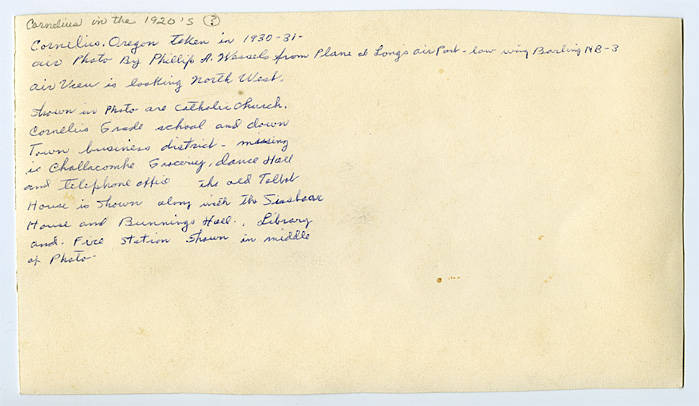 Cornelius in the 1920's (?)
Cornelius. Oregon taken in 1930-31-
air Photo By Phillip H. Wessels from Plane at Longs airPort - low wing Barling NB-3
air View is looking North West.
Shown in Photo are Catholic Church.
Cornelius Grade school and down
Town business district - missing
is Challacombe Grocery, dance Hall
and telephone office the old Talbot
House is shown along with the
House and Bunnings Hall., Library
and. Fire Station shown in middle
of Photo-